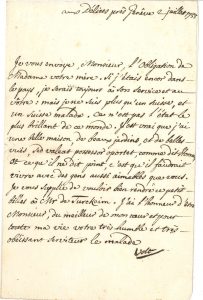 aux Délices près Genève 2 juillet 1755
Je vous envoye, Monsieur, l'obligation de
Madame votre mere. Si j'étais encor dans
le pays, je serais toujours à son service et au
votre: mais je ne suis plus qu'un suisse, et
un suisse malade, car n'est pas l'état le
plus brillant de ce monde. J'ai
une belle maison de beaux jardins, et de belles
vues.
et ce qu'il me dit point, c'est qu'il faudrait
vivre avec des gens aussi aimables que vous.
Je vous suplie de vouloir bien rendre ce petit
billet à Mr de Turckeim. J'ai l'honneur d'être
Monsieur, du meilleur de mon cœur et pour
toute ma vie votre très humble et très
obéissant serviteur le malade
Volt